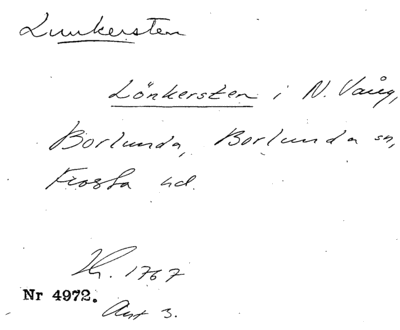 Lunkersten
Lönkersten i N. Vång,
Borlunda, Borlunda sn,
Frosta hd.
Hr. 1767
Nr 4972.
Akt 3.